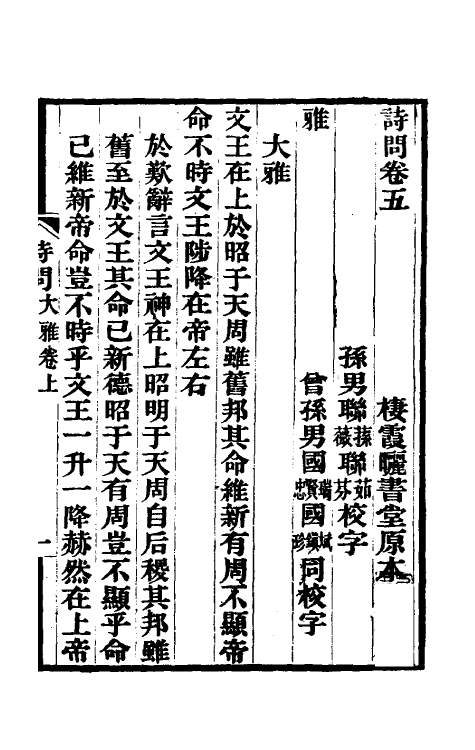 詩問卷五
棲霞曬書堂原本
孫男聯蓀薇聯茹芬校字
雅
曾孫男國瑞賢忠國斌鎭珍同校字
大雅
文王在上於昭于天周雖舊邦其命維新有周不顯帝
命不時文王陟降在帝左右
於歎辭言文王神在上昭明于天周自后稷其邦雖
舊至於文王其命已新德昭于天有周豈不顯乎命
已維新帝命豈不時乎文王一升一降赫然在上帝
詩問大雅卷上
一